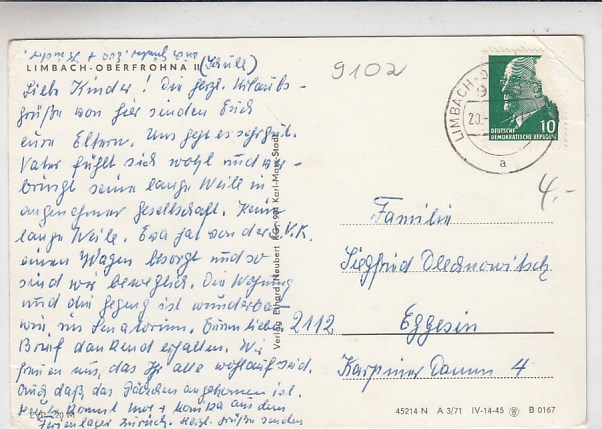 LIMBACH-OBERFROHNA II (Säule)
9102
Liebe Kinder! Die herzl. Urlaubs-
grüße von hier senden Euch
eure Eltern. Uns geht es sehr gut.
Vater fühlt sich wohl und ver-
bringt seine lange Weile in
angenehmer Gesellschaft. Keine
lange Weile. Ewa hat von der V.K.
einen Wagen besorgt und so
sind wir beweglich. Die Wohnung
und die Gegend ist wunderbar
wie im Senatorium. Euren lieben
Brief dankend erhalten. Wir
freuen uns, das Ihr alle wohlauf seid.
Auch daß das Päckchen angekommen ist.
aus dem
Ferienlager zurück. Herzl. Grüße senden
Verlag Erhard Neubert KG, Karl-Marx-Stadt
LIMBACH-O
20.
a
DEUTSCHE
DEMOKRATISCHE REPUBLIK
10
4.-
Familie
Siegfried Olechnowitsch
2112 Eggesin
Karpiner Damm 4
45214 N A 3/71 IV-14-45 B 0167